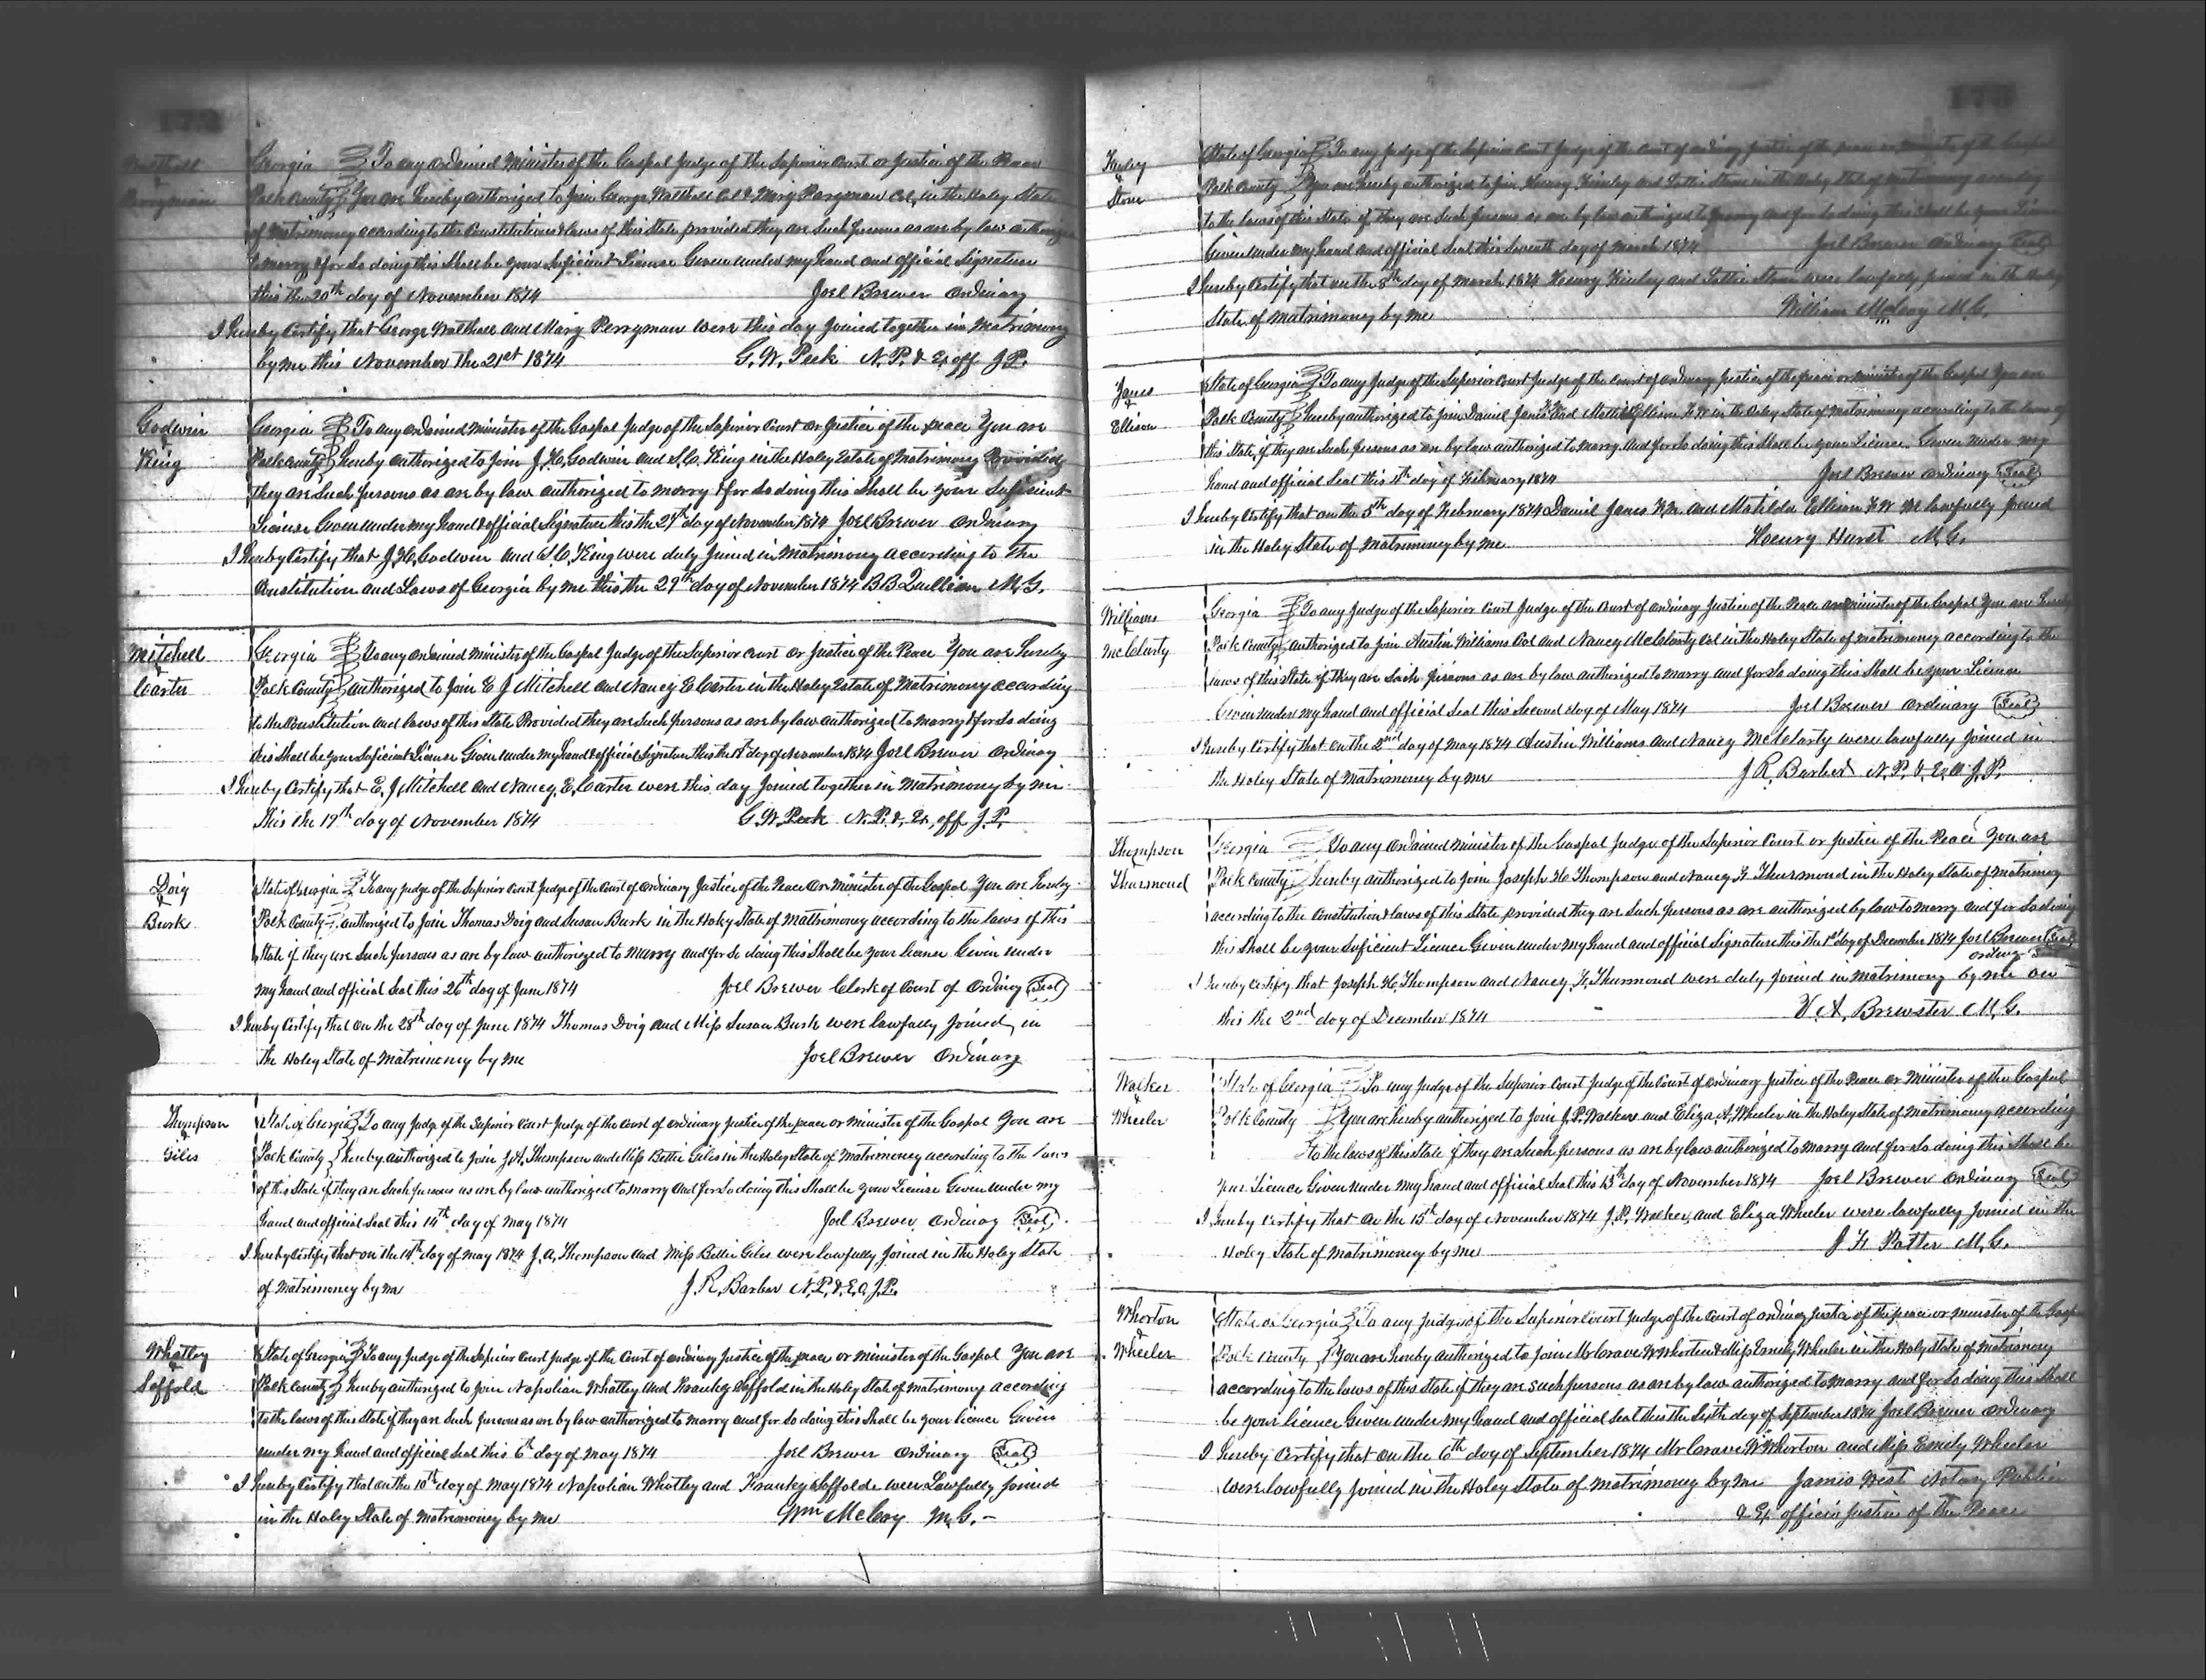 172
Walthall
&
Perryman
Georgia } To any ordained Minister of the Gospel Judge of the Superior Court or Justice of the Peace
Polk County } You are hereby authorized to Join George Walthall Col & Mary Perryman Col, in the Holey State
of Matrimoney according to the Constitution & laws of this State provided they are Such persons as are by law authorized
to marry & for So doing this Shall be your Suficient License Given under my hand and official Signature
this the 20th day of November 1874 Joel Brewer Ordinary
I hereby Certify that George Walthall and Mary Perryman were this day Joined together in Matrimony
by me this November the 21st 1874 G. W. Peek N. P. & Ex, off J. P.
Godwin
&
King
Georgia } To any ordained Minister of the Gospel Judge of the Superior Court or Justice of the peace You are
Polk County } hereby authorized to Join J. H. Godwin and S. C. King in the Holey Estate of Matrimony Provided
they are Such persons as are by law authorized to marry & for So doing this Shall be your Suficient
License Given under my hand & official Signature this the 27th day of November 1874 Joel Brewer Ordinary
I hereby Certify that J. H. Godwin and S. C. King were duly Joined in Matrimony according to the
Constitution and Laws of Georgia by me this the 29th day of November 1874 B B Quillian M. G.
Mitchell
&
Carter
Georgia } To any ordained Minister of the Gospel Judge of the Superior Court or Justice of the Peace You are hereby
Polk County } authorized to Join E J Mitchell and Nancy E Carter in the Holey Estate of Matrimony according
to the Constitution and laws of this State Provided they are Such persons as are by law authorized to marry & for So doing
this Shall be your Suficient License Given under my hand & official Signature this the day of November 1874 Joel Brewer Ordinary
I hereby Certify that E. J Mitchell and Nancy, E, Carter were this day Joined together in Matrimony by me
This the 19th day of November 1874 G. W. Peek N. P. &, Ex, off J. P.
Doig
&
Burk
State of Georgia } To any Judge of the Superior Court Judge of the Court of Ordinary Justice of the Peace or Minister of the Gospel You are hereby
Polk County } authorized to Join Thomas Doig and Susan Burk in the Holey State of Matrimoney according to the laws of this
State if they are Such persons as are by law authorized to marry and for So doing this Shall be your licence Given under
my hand and official Seal this 26th day of June 1874 Joel Brewer Clerk of Court of Ordinary (Seal)
I hereby Certify that on the 28th day of June 1874 Thomas Doig and Miss Susan Burk were lawfully Joined, in
the Holey State of Matrimoney by me Joel Brewer Ordinary
Thompson
&
Giles
State of Georgia } To any Judge of the Superior Court Judge of the Court of ordinary Justice of the peace or Minister of the Gospel You are
Polk County } hereby authorized to Join J. A, Thompson and Miss Bettie Giles in the Holey State of Matrimoney according to the laws
of this State if they are Such persons as are by law authorized to marry and for So doing this Shall be your License Given under my
hand and official Seal this 14th day of May 1874 Joel Brewer, Ordinary (Seal)
I hereby Certify, that on the 14th day of May 1874 J. A, Thompson and Miss Bettie Giles were lawfully Joined in the Holey State
of Matrimoney by me J. R. Barber N. P, & E. O, J. P.
Whatley
&
Soffold
State of Georgia } To any Judge of the Superior Court Judge of the Court of ordinary Justice of the peace or Minister of the Gospel You are
Polk County } hereby authorized to Join Napolian Whatley and Franky Soffold in the Holey State of Matrimony according
to the laws of this State if they are Such persons as are by law authorized to marry and for So doing this Shall be your licence Given
under my hand and official Seal this 6th day of May 1874 Joel Brewer Ordinary (Seal)
I hereby Certify that on the 10th day of May 1874 Napolian Whatley and Franky Soffolde were Lawfully Joined
in the Holey State of Matrimoney by me Wm McCoy M. G. —
173
Kinley
&
Stone
State of Georgia } To any Judge of the Superior Court Judge of the Court of ordinary Justice of the peace or Minister of the Gospel
Polk County } You are hereby authorized to Join Henry Kinley and Lottie Stone in the Holey State of Matrimoney according
to the laws of this State if they are Such persons as are by law authorized to marry and for So doing this Shall be your
Given under my hand and official Seal this Seventh day of March 1874 Joel Brewer Ordinary (Seal)
I hereby Certify that on the 8th day of March 1874 Henry Kinley and Lottie Stone were lawfully Joined in the Holey
State of Matrimoney by me William McCoy M. G,
Janes
&
Ellison
State of Georgia } To any Judge of the Superior Court Judge of the Court of ordinary Justice of the peace or Minister of the Gospel You are
Polk County } hereby authorized to Join Daniel Janes and Ellison in the Holey State of Matrimoney according to the laws of
this State, if they are Such persons as are by law authorized to marry and for So doing this Shall be your License. Given under my
hand and official Seal this 4th day of February 1874 Joel Brewer Ordinary (Seal)
I hereby Certify that on the 5th day of February 1874 Daniel Janes and Matilda Ellison lawfully Joined
in the Holey State of Matrimoney by me Henry Hurst M. G.
Williams
&
McClarty
Georgia } To any Judge of the Superior Court Judge of the Court of ordinary Justice of the Peace or Minister of the Gospel You are hereby
Polk County } authorized to Join Austin Williams Col and Nancy McClarty Col in the Holey State of Matrimoney according to the
laws of this State if they are Such persons as are by law authorized to marry and for So doing this Shall be your License
Given under my hand and official Seal this Second day of May 1874 Joel Brewer Ordinary (Seal)
I hereby Certify that on the 2nd day of May 1874 Austin Williams and Nancy McClarty were lawfully Joined in
the Holey State of Matrimoney by me J R, Barber N. P. & E, O J. P.
Thompson
&
Thurmond
Georgia } To any Ordained Minister of the Gospel Judge of the Superior Court or Justice of the Peace You are
Polk County } hereby authorized to Join Joseph H Thompson and Nancy F. Thurmond in the Holey State of Matrimony
according to the Constitution & laws of this State provided they are Such persons as are authorized by law to marry and for So doing
this Shall be your Suficient Licence Given under my hand and official Signature this the 1st day of December 1874 Joel Brewer (Seal)
ordinary
I hereby Certify that Joseph H, Thompson and Nancy F, Thurmond were duly Joined in Matrimony by me on
this the 2nd day of December 1874 W. A, Brewster M, G.
Walker
&
Wheeler
State of Georgia } To any Judge of the Superior Court Judge of the Court of ordinary Justice of the Peace or Minister of the Gospel
Polk County } You are hereby authorized to Join J. P. Walker and Eliza A, Wheeler in the Holey State of Matrimoney according
to the laws of this State if they are Such persons as are by law authorized to marry and for So doing this Shall be
your Licence Given under my hand and official Seal this 13th day of November 1874 Joel Brewer Ordinary (Seal)
I hereby Certify that on the 15th day of November 1874 J. P, Walker, and Eliza Wheeler were lawfully Joined in the
Holey State of Matrimoney by me J F. Potter M. G.
Whorton
&
Wheeler
State of Georgia } To any Judge of the Superior Court Judge of the Court of ordinary Justice of the peace or minister of the Gospel
Polk County } You are hereby authorized to Join Mr Crave W Whorton & Miss Emily Wheeler in the Holey State of Matrimony
according to the laws of this State if they are such persons as are by law authorized to marry and for So doing this Shall
be your licence Given under my hand and official Seal this the Sixth day of September 1874 Joel Brewer Ordinary
I hereby Certify that on the 6th day of September 1874 Mr Crave W Whorton and Miss Emily Wheeler
were lawfully Joined in the Holey State of Matrimoney by me James West Notary Public
& Ex officio Justice of the Peace